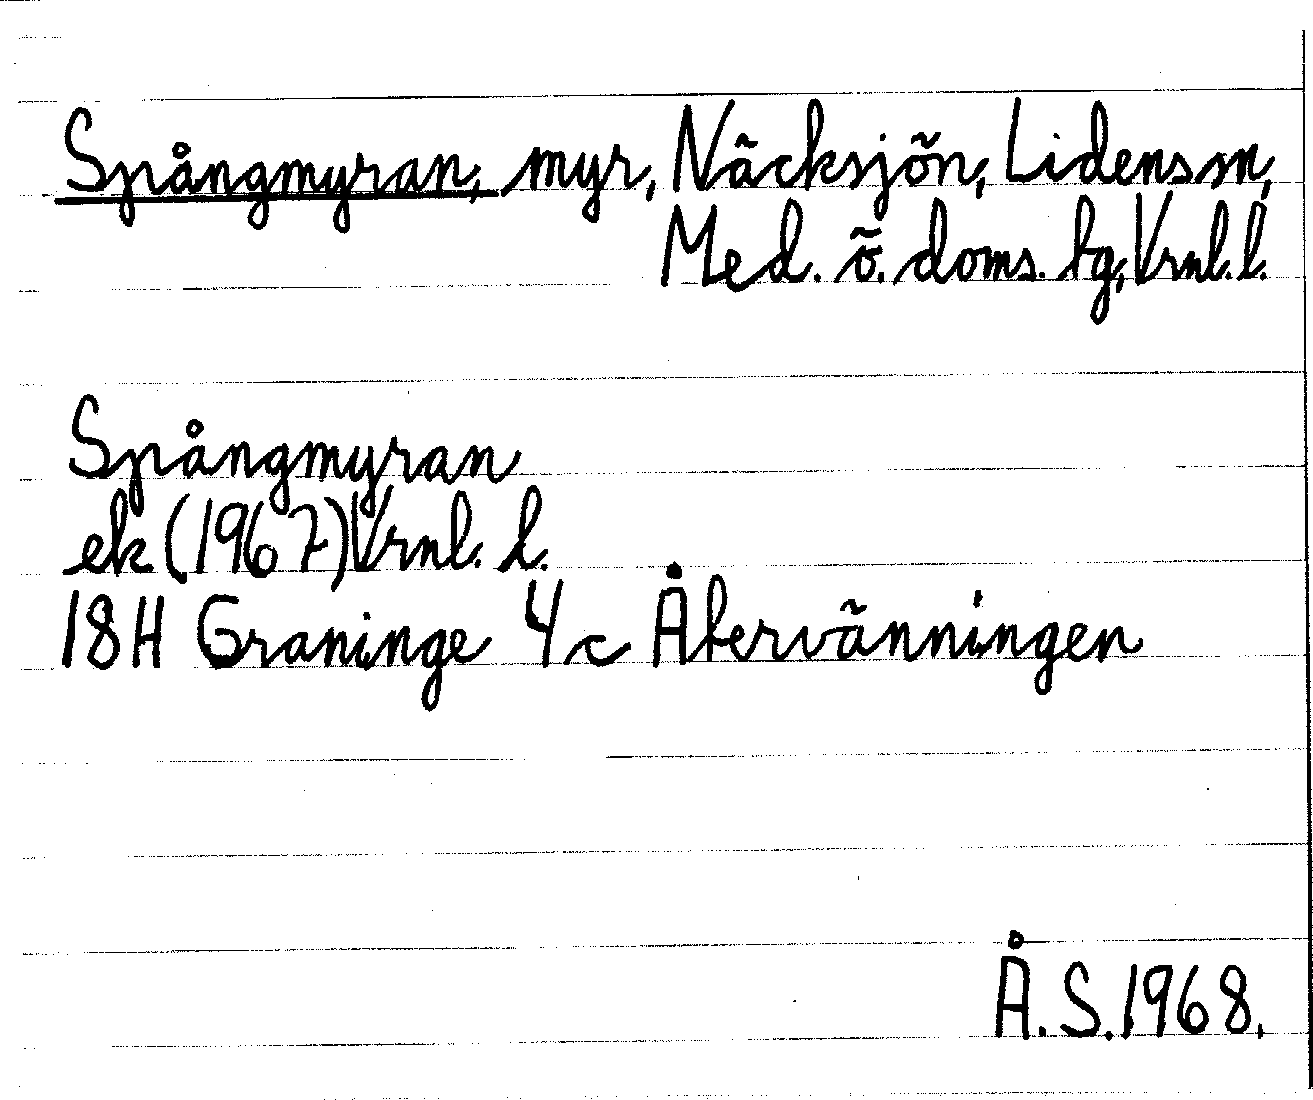 Spångmyran, myr, Näcksjön, Lidens sn,
Med. ö. doms. fg, Vrnl. l.
Spångmyran
ek (1967) Vrnl. l.
18H Graninge 4c Återvänningen
Å.S. 1968.